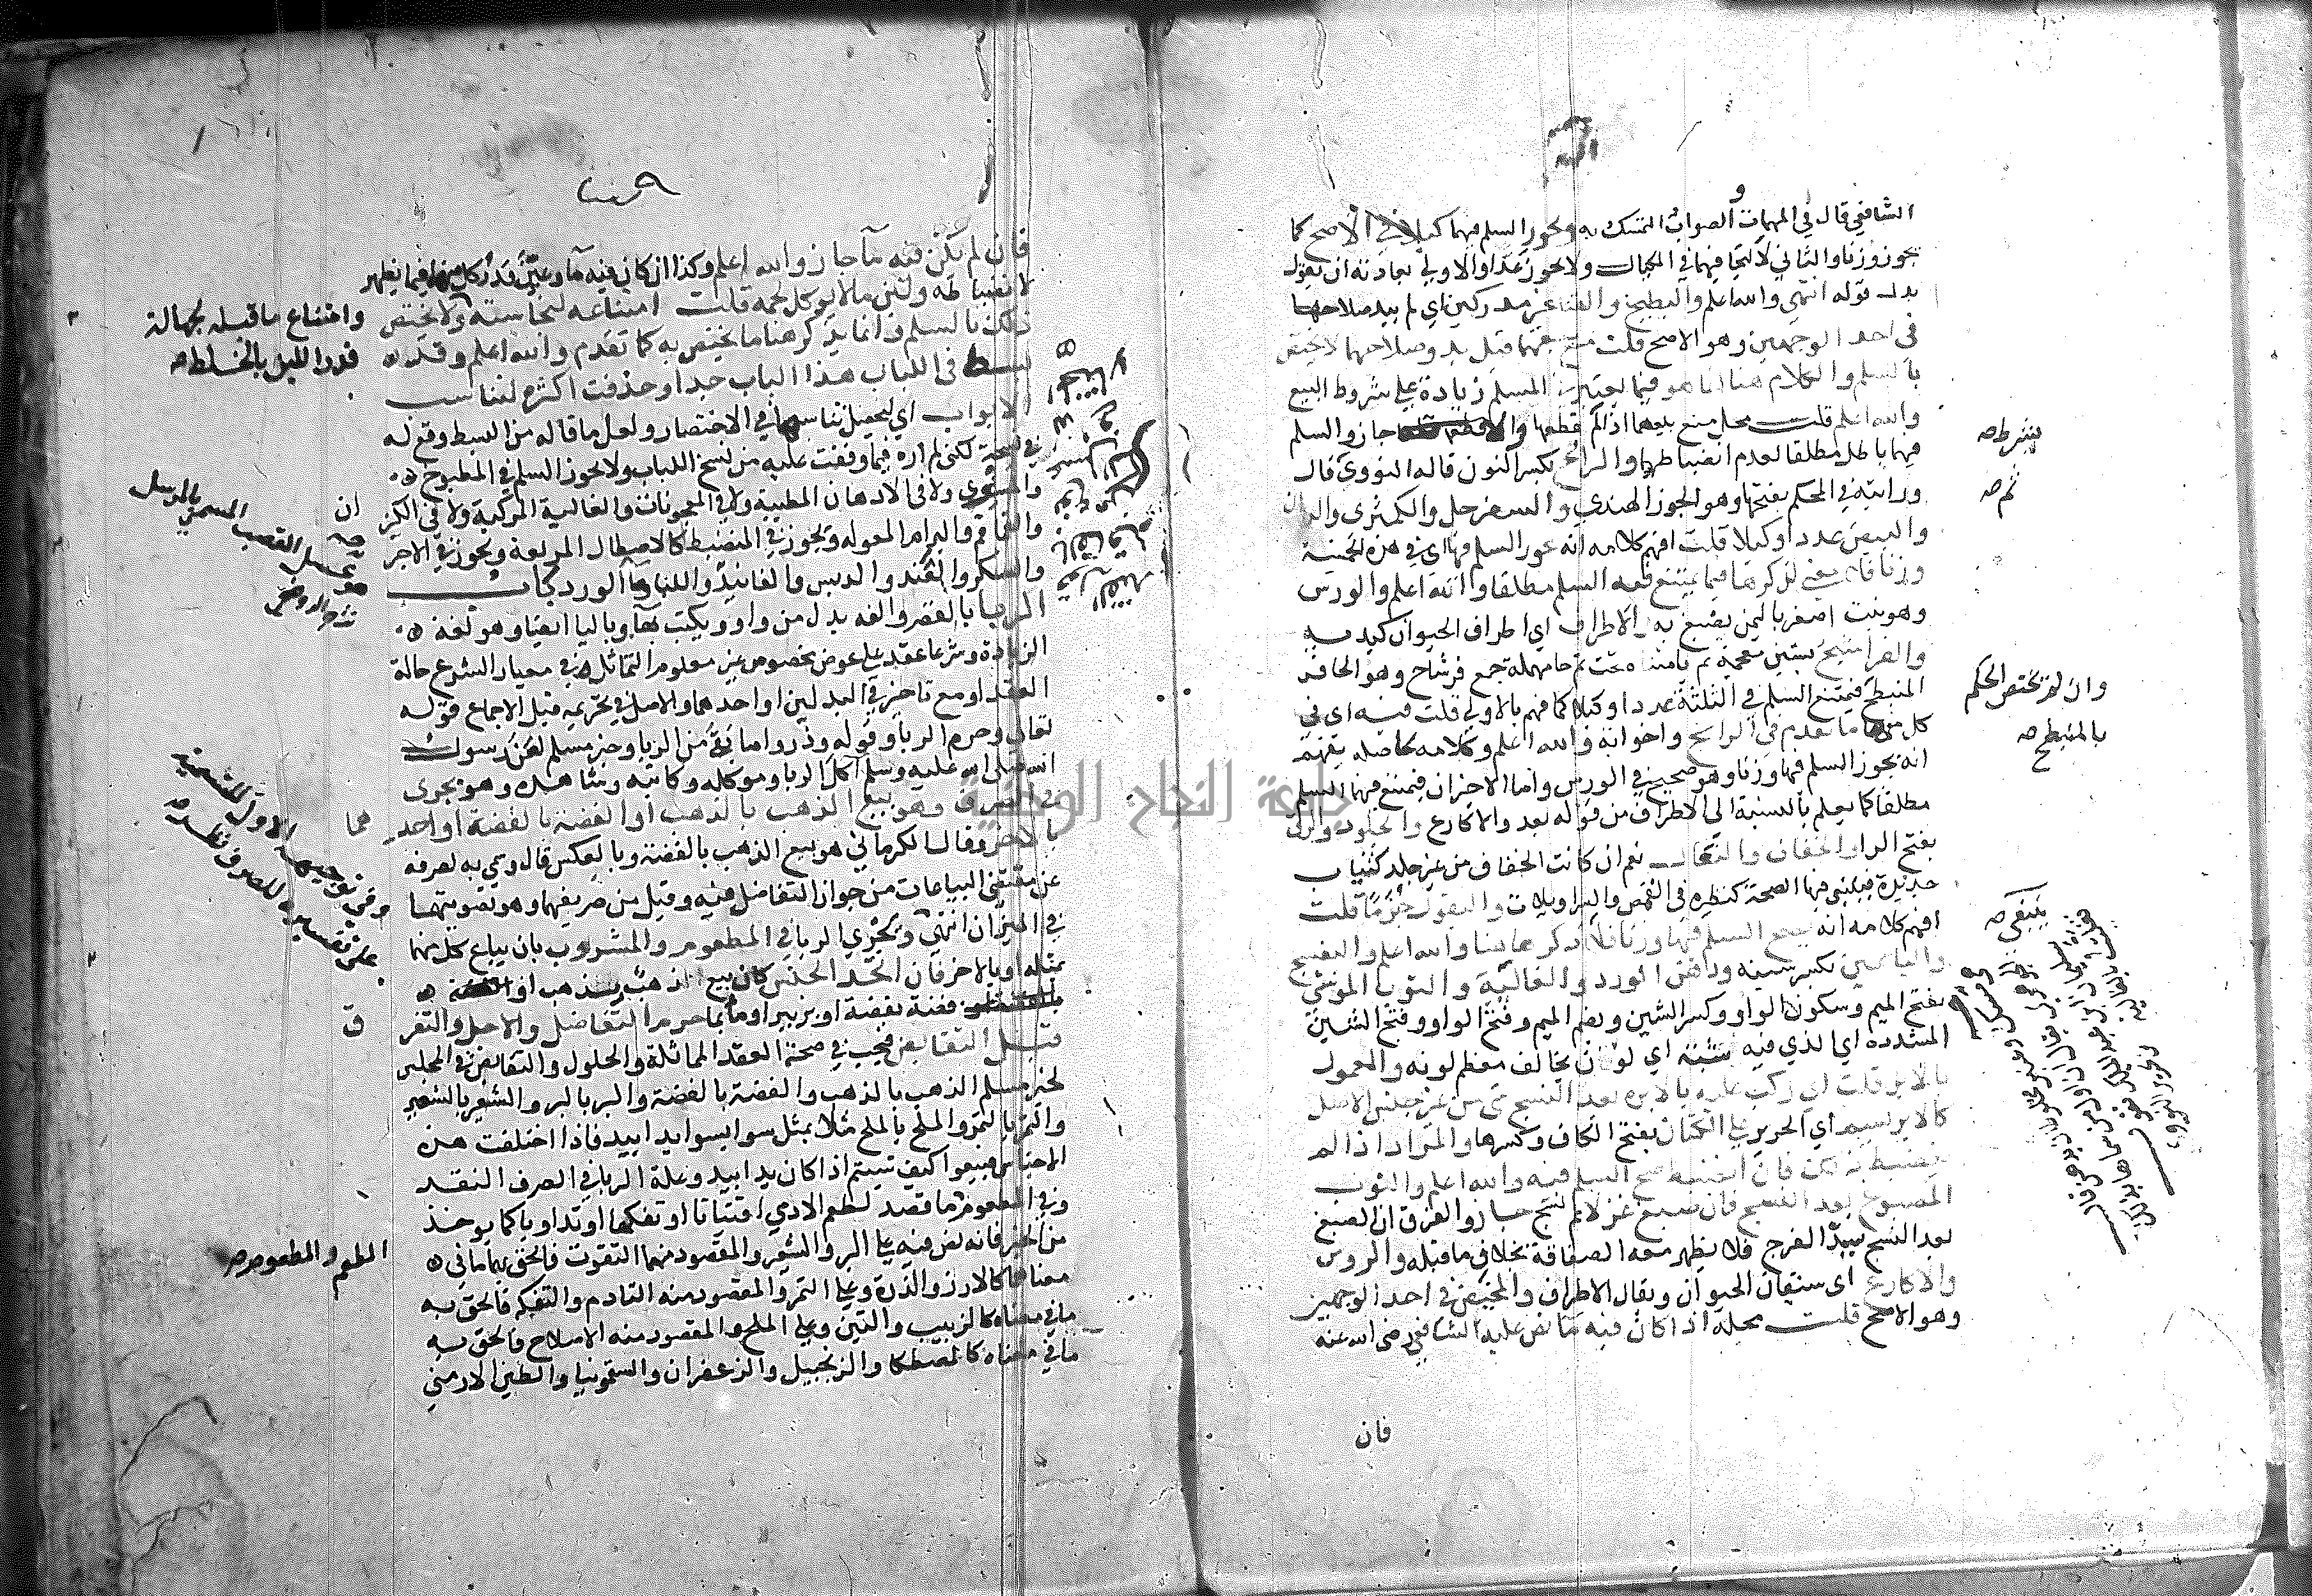 الشافعي قال في المهمات والصواب التمسك به ويجوز السلم فيهما كيلا في الاصح كما
يجوز وزنا والثاني لا لتجافيهما في المكيال ولا يجوز عدا والاولى بعادته ان يقول
بدل قوله انتهى والله اعلم والبطيخ والقثا غير مدركين اي لم يبد صلاحهما
في احد الوجهين وهو الاصح قلت منع بيعهما قبل بدو صلاحهما لا يختص
بالسلم والكلام هنا انما هو فيما يعتبر في السلم زيادة على شروط البيع
والله اعلم قلت محل منع بيعهما اذا لم قطعها والا جاز والسلم
فيها باطل مطلقا لعدم انضباطها والرانج بكسر النون قاله النووي قال
ورايته في المحكم بفتحها وهو الجوز الهندي والسفرجل والكمثرى والرمان
والبيض عددا وكيلا قلت افهم كلامه انه يجوز السلم فيها اي في هذه الخمسة
وزنا فلا معنى لذكرها فيما يمتنع فيه السلم مطلقا والله اعلم والورس
وهو نبت اصفر باليمن يصبغ به والاطراف اي اطراف الحيوان كيديه
والفراشيح بشين معجمة ثم يا مثناة تحت ثم حا مهملة جمع فرشاح وهو الحافر
المنبطح فيمتنع السلم في الثلثة عددا وكيلا كما فهم بالاولى قلت فيه اي في
كل منها ما تقدم في الرانج واخواته والله اعلم وكلامه كاصله يفهم
انه يجوز السلم فيها وزنا وهو صحيح في الورس واما الاخران فيمتنع فيهما السلم
مطلقا كما يعلم بالنسبة الى الاطراف من قوله بعد والاكارع والجلود والرق
بفتح الرا والخفاف والنعال نعم ان كانت الخفاف من غير جلد كثياب
جديدة فينبغي فيها الصحة كنظيره في القمص والسراويلات والبقول حزما قلت
افهم كلامه انه يصح السلم فيها وزنا فلا تذكر هاهنا والله اعلم والبنفسج
والياسمين بكسر سينه ودهن الورد والغالية والثوب الموشى
بفتح الميم وسكون الواو وكسر الشين وبضم الميم وفتح الواو وفتح الشين
المشددة اي الذي فيه شية اي لون يخالف معظم لونه والمعمول
بالابر قلت اي ركب عليه بالابرة بعد النسج شي من غير جنس الاصل
كالابريسم اي الحرير على الكتان بفتح الكاف وكسرها والمراد اذا لم
ينضبط فان انضبط صح السلم فيه والله اعلم والثوب
المصبوغ بعد النسج فان صبغ غزلا ثم نسج جاز والفرق ان الصبغ
بعد النسج يسد الفرج فلا يظهر معه الصفاقة بخلاف ما قبله والروس
والاكارع اي سيقان الحيوان ويقال الاطراف والمخيض في احد الوجهين
وهو الاصح قلت محله اذا كان فيه ما نص عليه الشافعي رضي الله عنه
فان
بشرط صح
ثم صح
وان لم يختص الحكم
بالمنبطح صح
ينبغي صح
فان لم يكن فيه ما جاز والله اعلم وكذا ان كان فيه ما وعين قدر كل منهما فيما يظهر
لانضباطه ولبن ما لا يوكل لحمه قلت امتناعه لنجاسته ولا يختص
ذلك بالسلم وانما يذكر هنا ما يختص به كما تقدم والله اعلم وقد
بسط في اللباب هذا الباب جدا وحذفت اكثره لتناسب
الابواب اي ليحصل تناسبها في الاختصار ولعل ما قاله من البسط وقع له
في نسخة لكني لم اره فيما وقفت عليه من نسخ اللباب ولا يجوز السلم في المطبوخ
والمشوي ولا في الادهان المطيبة ولا في المعجونات والغالية المركبة ولا في الكيزان
والقماقم والبرام المعمولة ويجوز في المنضبط كالاسطال المربعة ويجوز في الاجر
والسكر والقند والدبس والفانيد واللبا وما الورد كتاب
الربا بالقصر والفه بدل من واو ويكتب بهما وباليا ايضا وهو لغة
الزيادة وشرعا عقد على عوض مخصوص غير معلوم التماثل في معيار الشرع حالة
العقد او مع تاخير في البدلين او احدهما والاصل في تحريمه قبل الاجماع قوله
تعالى وحرم الربا وقوله وذروا ما بقي من الربا وخبر مسلم لعن رسول
الله صلى الله عليه وسلم اكل الربا وموكله وكاتبه وشاهده وهو يجري
في الصرف وهو بيع الذهب بالذهب او الفضة بالفضة او احدهما
بالاخر وقال الكرماني هو بيع الذهب بالفضة وبالعكس قال وسمي به لصرفه
عن مقتضى البياعات من جواز التفاضل فيه وقيل من صريفهما وهو تصويتهما
في الميزان انتهى ويجري الربا في المطعوم والمشروب بان يباع كل منهما
بمثله او بالاخر فان اتحد الجنس كان بيع ذهب بذهب او
فضة بفضة او بر ببر او ما بما حرم التفاضل والاجل والتفرق
قبل التقابض فيجب في صحة العقد المماثلة والحلول والتقابض في المجلس
لخبر مسلم الذهب بالذهب والفضة بالفضة والبر بالبر والشعير بالشعير
والتمر بالتمر والملح بالملح مثلا بمثل سوا بسوا يدا بيد فاذا اختلفت هذه
الاجناس فبيعوا كيف شيتم اذا كان يدا بيد وعلة الربا في الصرف النقد
وفي المطعوم ما قصد لطعم الادمي اقتياتا او تفكها او تداويا كما يوخذ
من الخبر فانه نص فيه على البر والشعير والمقصود منهما التقوت فالحق بهما ما في
معناهما كالارز والذرة وعلى التمر والمقصود منه التادم والتفكه فالحق به
ما في معناه كالزبيب والتين وعلى الملح والمقصود منه الاصلاح فالحق به
ما في معناه كالمصطكا والزنجبيل والزعفران والسقمونيا والطين الارمني
وامتناع ما قبله لجهالة
قدر اللبن بالخلط صح
هو عسل القصب المسمى بالمرسل
شرح الروض
المطعم والمطعوم صح
جامعة النجاح الوطنية